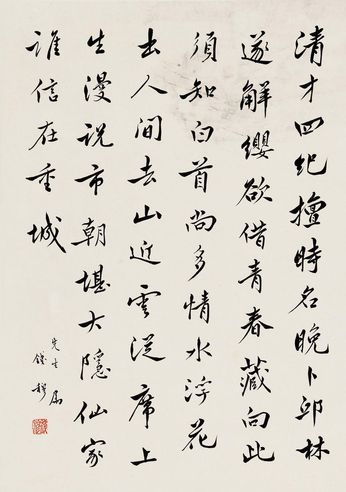 清才四紀擅時名晚卜邱林
遂解纓欲借青春藏向此
須知白首尚多情水浮花
出人間去山近雲從席上
生漫說市朝堪大隱仙家
誰信在重城
先生屬
錢穆